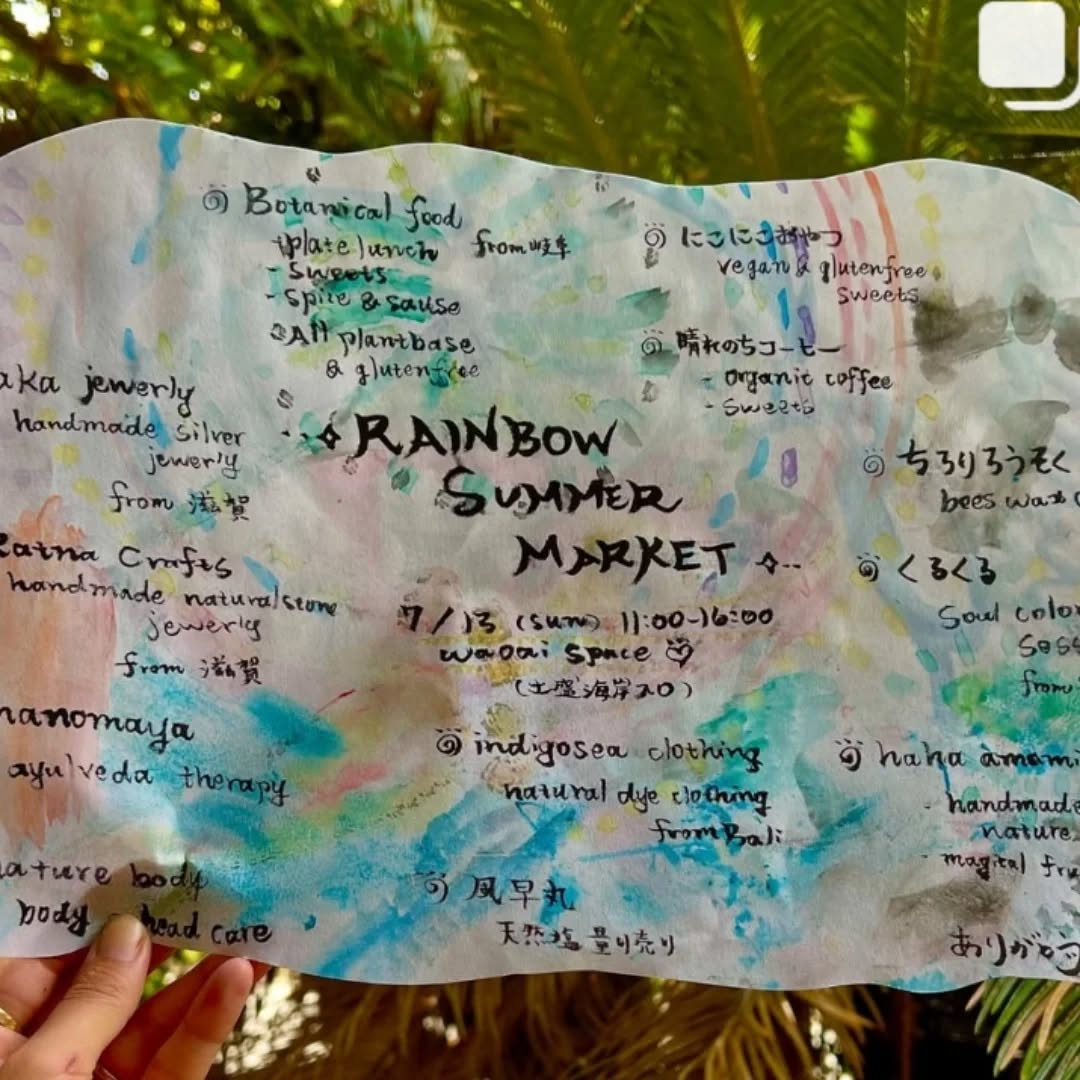 Botanical food
plate lunch from岐阜
- sweets
- spice & sause
All plantbase
& glutenfree
にこにこおやつ
vegan & glutenfree
sweets
晴れのちコーヒー
- organic coffee
- sweets
aka jewerly
handmade silver
jewerly
from 滋賀
Ratna Crafts
handmade naturalstone
jewerly
from 滋賀
nanomaya
ayulveda therapy
ature body
body head care
RAINBOW
SUMMER
MARKET
7/13 (sun) 11:00-16:00
wa0ai space
(土盛海岸入口)
indigosea clothing
natural dye clothing
from Bali
風早丸
天然塩 量り売り
ちろりろうそく
bees wax c
くるくる
Soul color
sess
from
haha amami
- handmade
nature
- magical fru
ありがとう